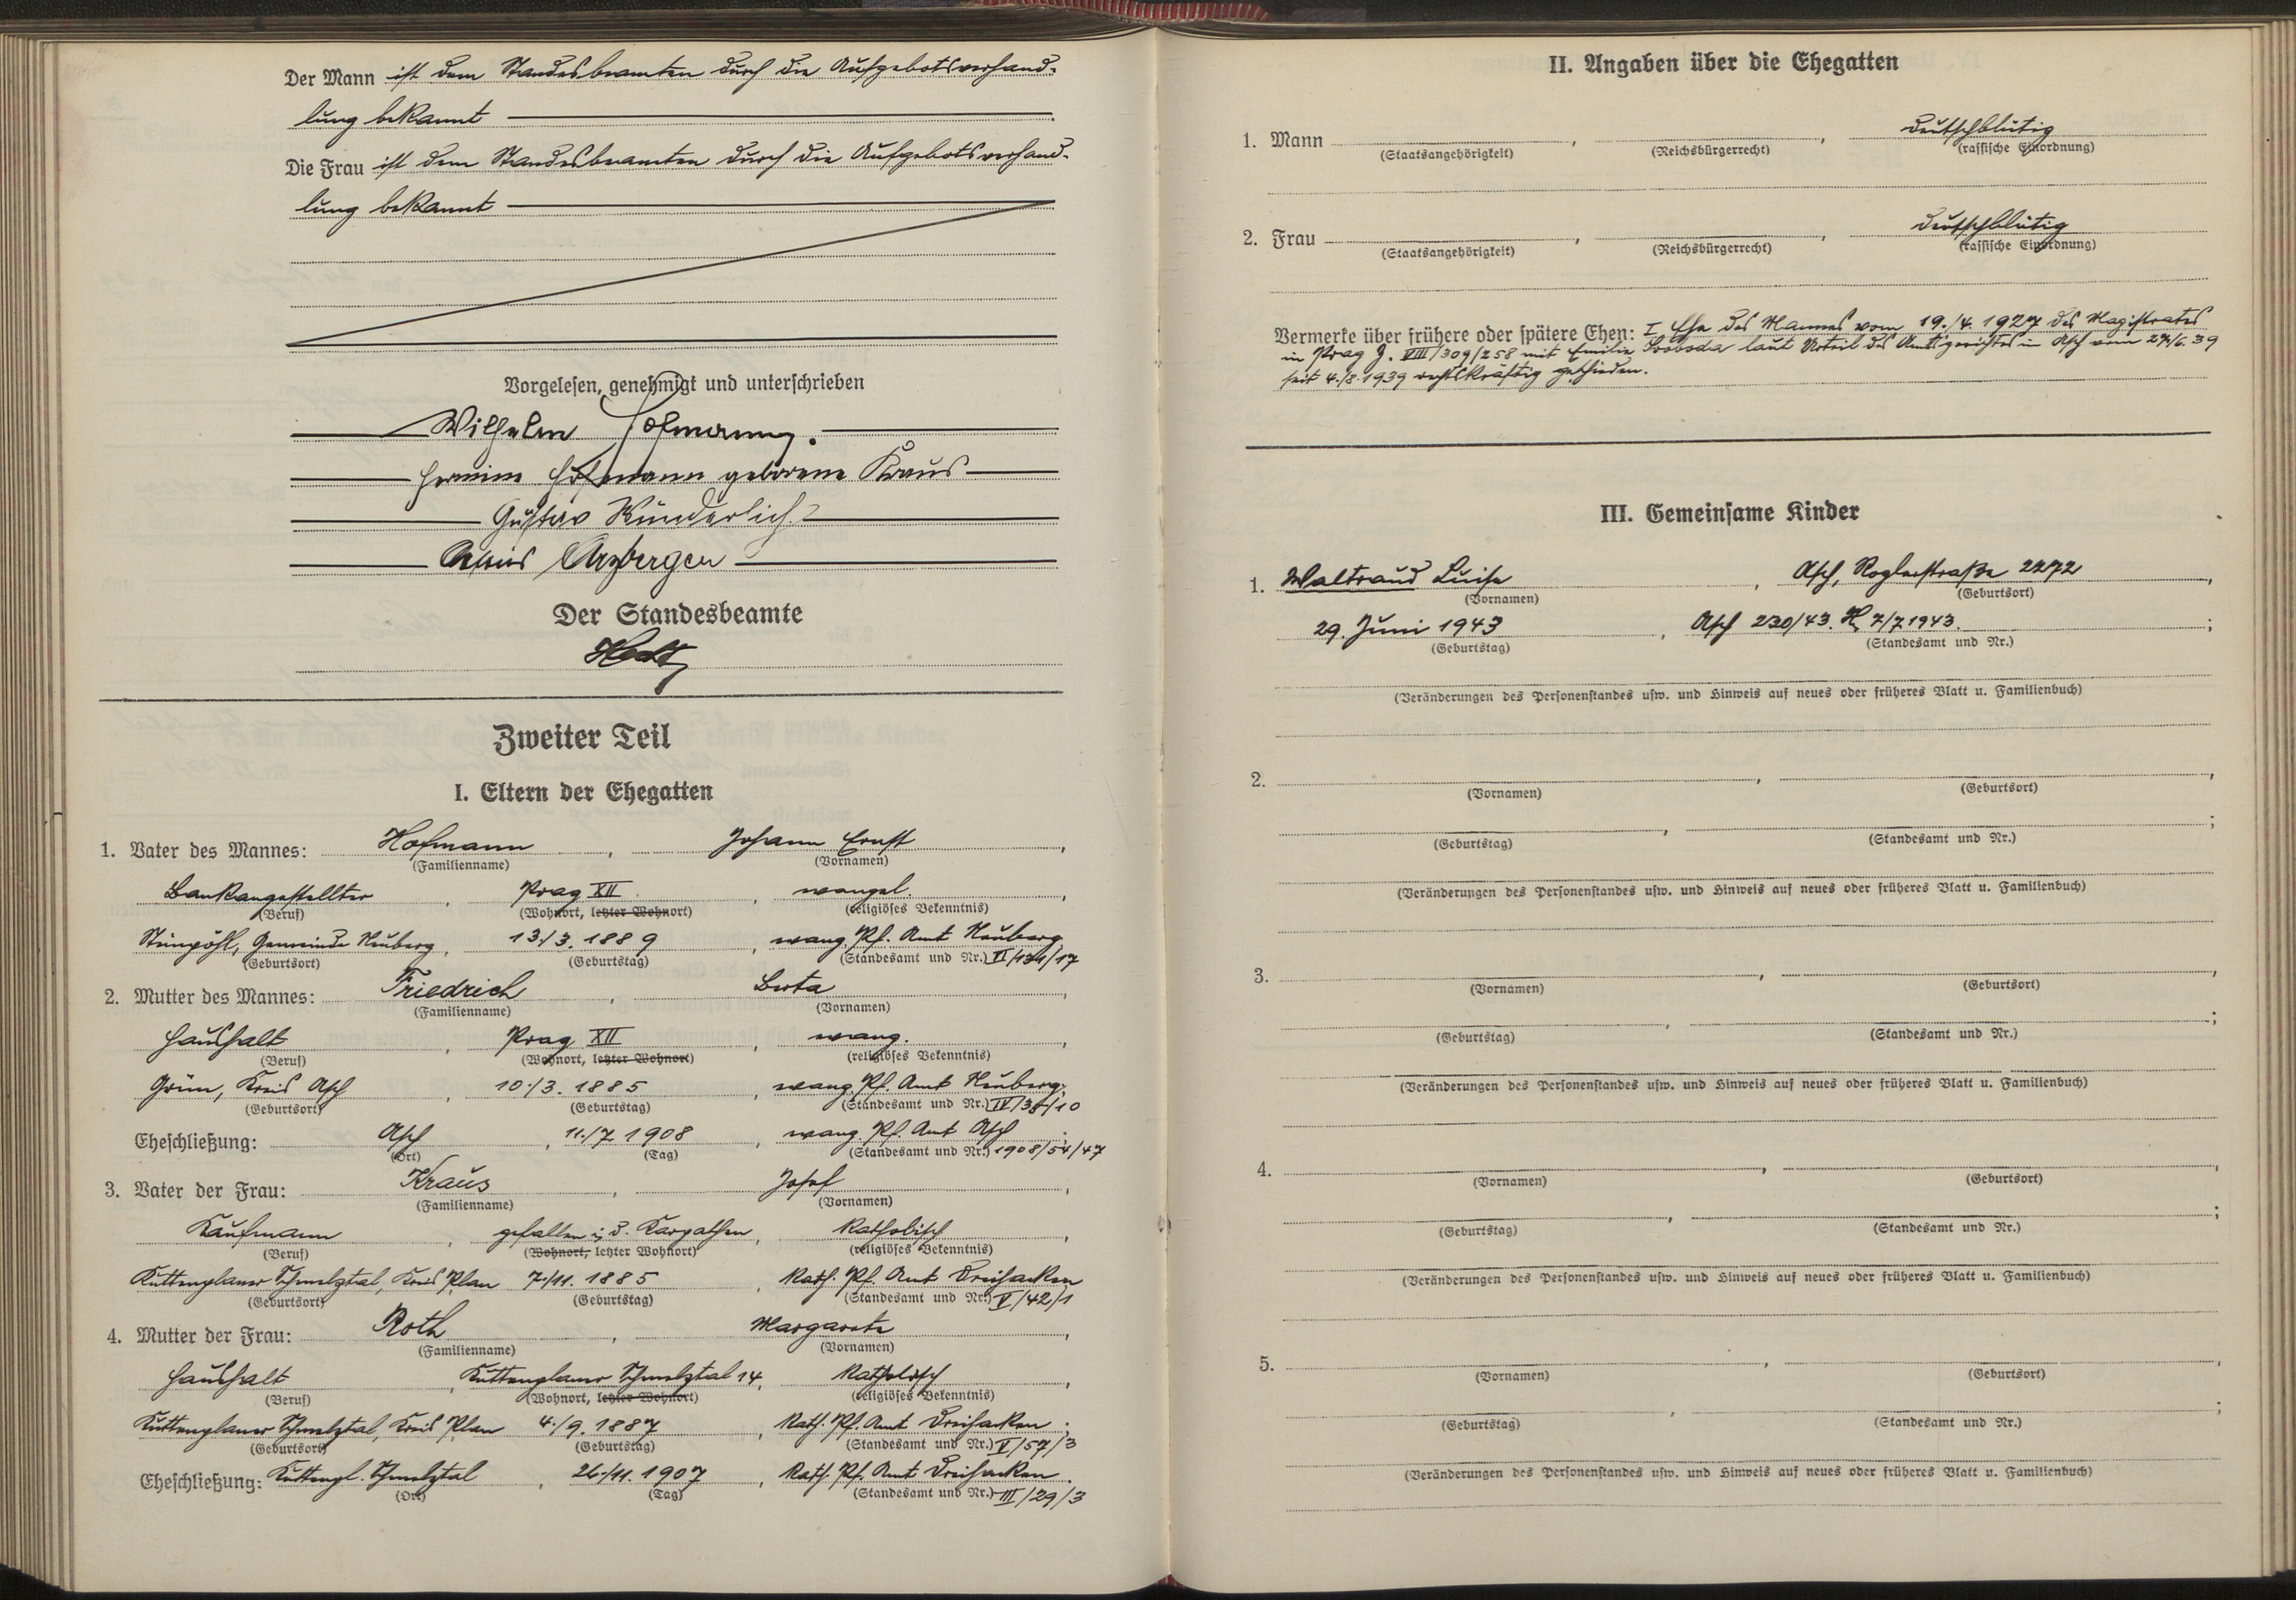 Der Mann ist dem Standesbeamten durch die Aufgebotsverhand-
lung bekannt
Die Frau ist dem Standesbeamten durch die Aufgebotsverhand-
lung bekannt
Vorgelesen, genehmigt und unterschrieben
Wilhelm Hofmann.
Hermine Hofmann geborene Kraus
Gustav Wunderlich
Arzberger
Der Standesbeamte
Zweiter Teil
I. Eltern der Ehegatten
1. Vater des Mannes: Hofmann, Johann Ernst,
(Familienname) (Vornamen)
Bankangestellter, Prag XII, evangel.,
(Beruf) (Wohnort, letzter Wohnort) (religiöses Bekenntnis)
Steinpöhl, Gemeinde Neuberg, 13./3. 1889, evang. Pf. Amt Neuberg
(Geburtsort) (Geburtstag) (Standesamt und Nr.) VI/131/17
2. Mutter des Mannes: Friedrich, Berta,
(Familienname) (Vornamen)
Haushalt, Prag XII, evang.,
(Beruf) (Wohnort, letzter Wohnort) (religiöses Bekenntnis)
Grün, Kreis Asch, 10./3. 1885, evang. Pf. Amt Neuberg;
(Geburtsort) (Geburtstag) (Standesamt und Nr.) IV/38/10
Eheschließung: Asch, 11./7. 1908, evang. Pf. Amt Asch.
(Ort) (Tag) (Standesamt und Nr.) 1908/54/47
3. Vater der Frau: Kraus, Josef,
(Familienname) (Vornamen)
Kaufmann, gefallen i. d. Karpathen, katholisch,
(Beruf) (Wohnort, letzter Wohnort) (religiöses Bekenntnis)
Kuttenplaner Schmelztal, Kreis Plan 7./11. 1885, kath. Pf. Amt Dreihacken
(Geburtsort) (Geburtstag) (Standesamt und Nr.) V/42/1
4. Mutter der Frau: Roth, Margarete,
(Familienname) (Vornamen)
Haushalt, Kuttenplaner Schmelztal 14, katholisch,
(Beruf) (Wohnort, letzter Wohnort) (religiöses Bekenntnis)
Kuttenplaner Schmelztal, Kreis Plan 4./9. 1887, kath. Pf. Amt Dreihacken;
(Geburtsort) (Geburtstag) (Standesamt und Nr.) V/57/3
Eheschließung: Kuttenpl. Schmelztal, 26./11. 1907, kath. Pf. Amt Dreihacken.
(Ort) (Tag) (Standesamt und Nr.) III/29/3
II. Angaben über die Ehegatten
1. Mann , , deutschblütig
(Staatsangehörigkeit) (Reichsbürgerrecht) (rassische Einordnung)
2. Frau , , deutschblütig
(Staatsangehörigkeit) (Reichsbürgerrecht) (rassische Einordnung)
Vermerke über frühere oder spätere Ehen: I. Ehe des Mannes vom 19./4. 1927 des Magistrates
in Prag Z. VIII/309/258 mit Emilie Svoboda laut Urteil des Amtsgerichtes in Asch vom 27./6. 39
seit 4./8. 1939 rechtskräftig geschieden.
III. Gemeinsame Kinder
1. Waltraud Luise, Asch, Roglerstraße 2272,
(Vornamen) (Geburtsort)
29. Juni 1943, Asch 230/43. 7/7 1943.;
(Geburtstag) (Standesamt und Nr.)
(Veränderungen des Personenstandes usw. und Hinweis auf neues oder früheres Blatt u. Familienbuch)
2. , ,
(Vornamen) (Geburtsort)
, ;
(Geburtstag) (Standesamt und Nr.)
(Veränderungen des Personenstandes usw. und Hinweis auf neues oder früheres Blatt u. Familienbuch)
3. , ,
(Vornamen) (Geburtsort)
, ;
(Geburtstag) (Standesamt und Nr.)
(Veränderungen des Personenstandes usw. und Hinweis auf neues oder früheres Blatt u. Familienbuch)
4. , ,
(Vornamen) (Geburtsort)
, ;
(Geburtstag) (Standesamt und Nr.)
(Veränderungen des Personenstandes usw. und Hinweis auf neues oder früheres Blatt u. Familienbuch)
5. , ,
(Vornamen) (Geburtsort)
, ;
(Geburtstag) (Standesamt und Nr.)
(Veränderungen des Personenstandes usw. und Hinweis auf neues oder früheres Blatt u. Familienbuch)